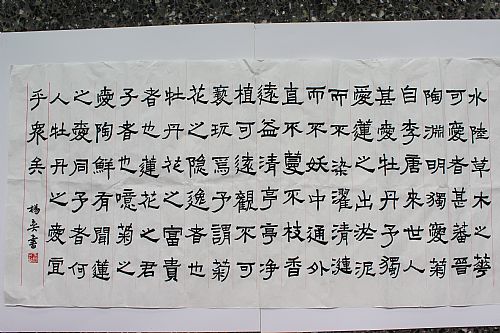 水陸草木之華
可愛者甚蕃晉
陶淵明獨愛菊
自李唐來世人
甚愛牡丹予獨
愛蓮之出淤泥
而不染濯清漣
而不妖中通外
直不蔓不枝香
遠益清亭亭淨
植可遠觀不可
褻玩焉予謂菊
花之隱逸者也
牡丹花之富貴
者也蓮花之君
子者也噫菊之
愛陶鮮有聞蓮
之愛同予者何
人牡丹之愛宜
乎眾矣
楊書